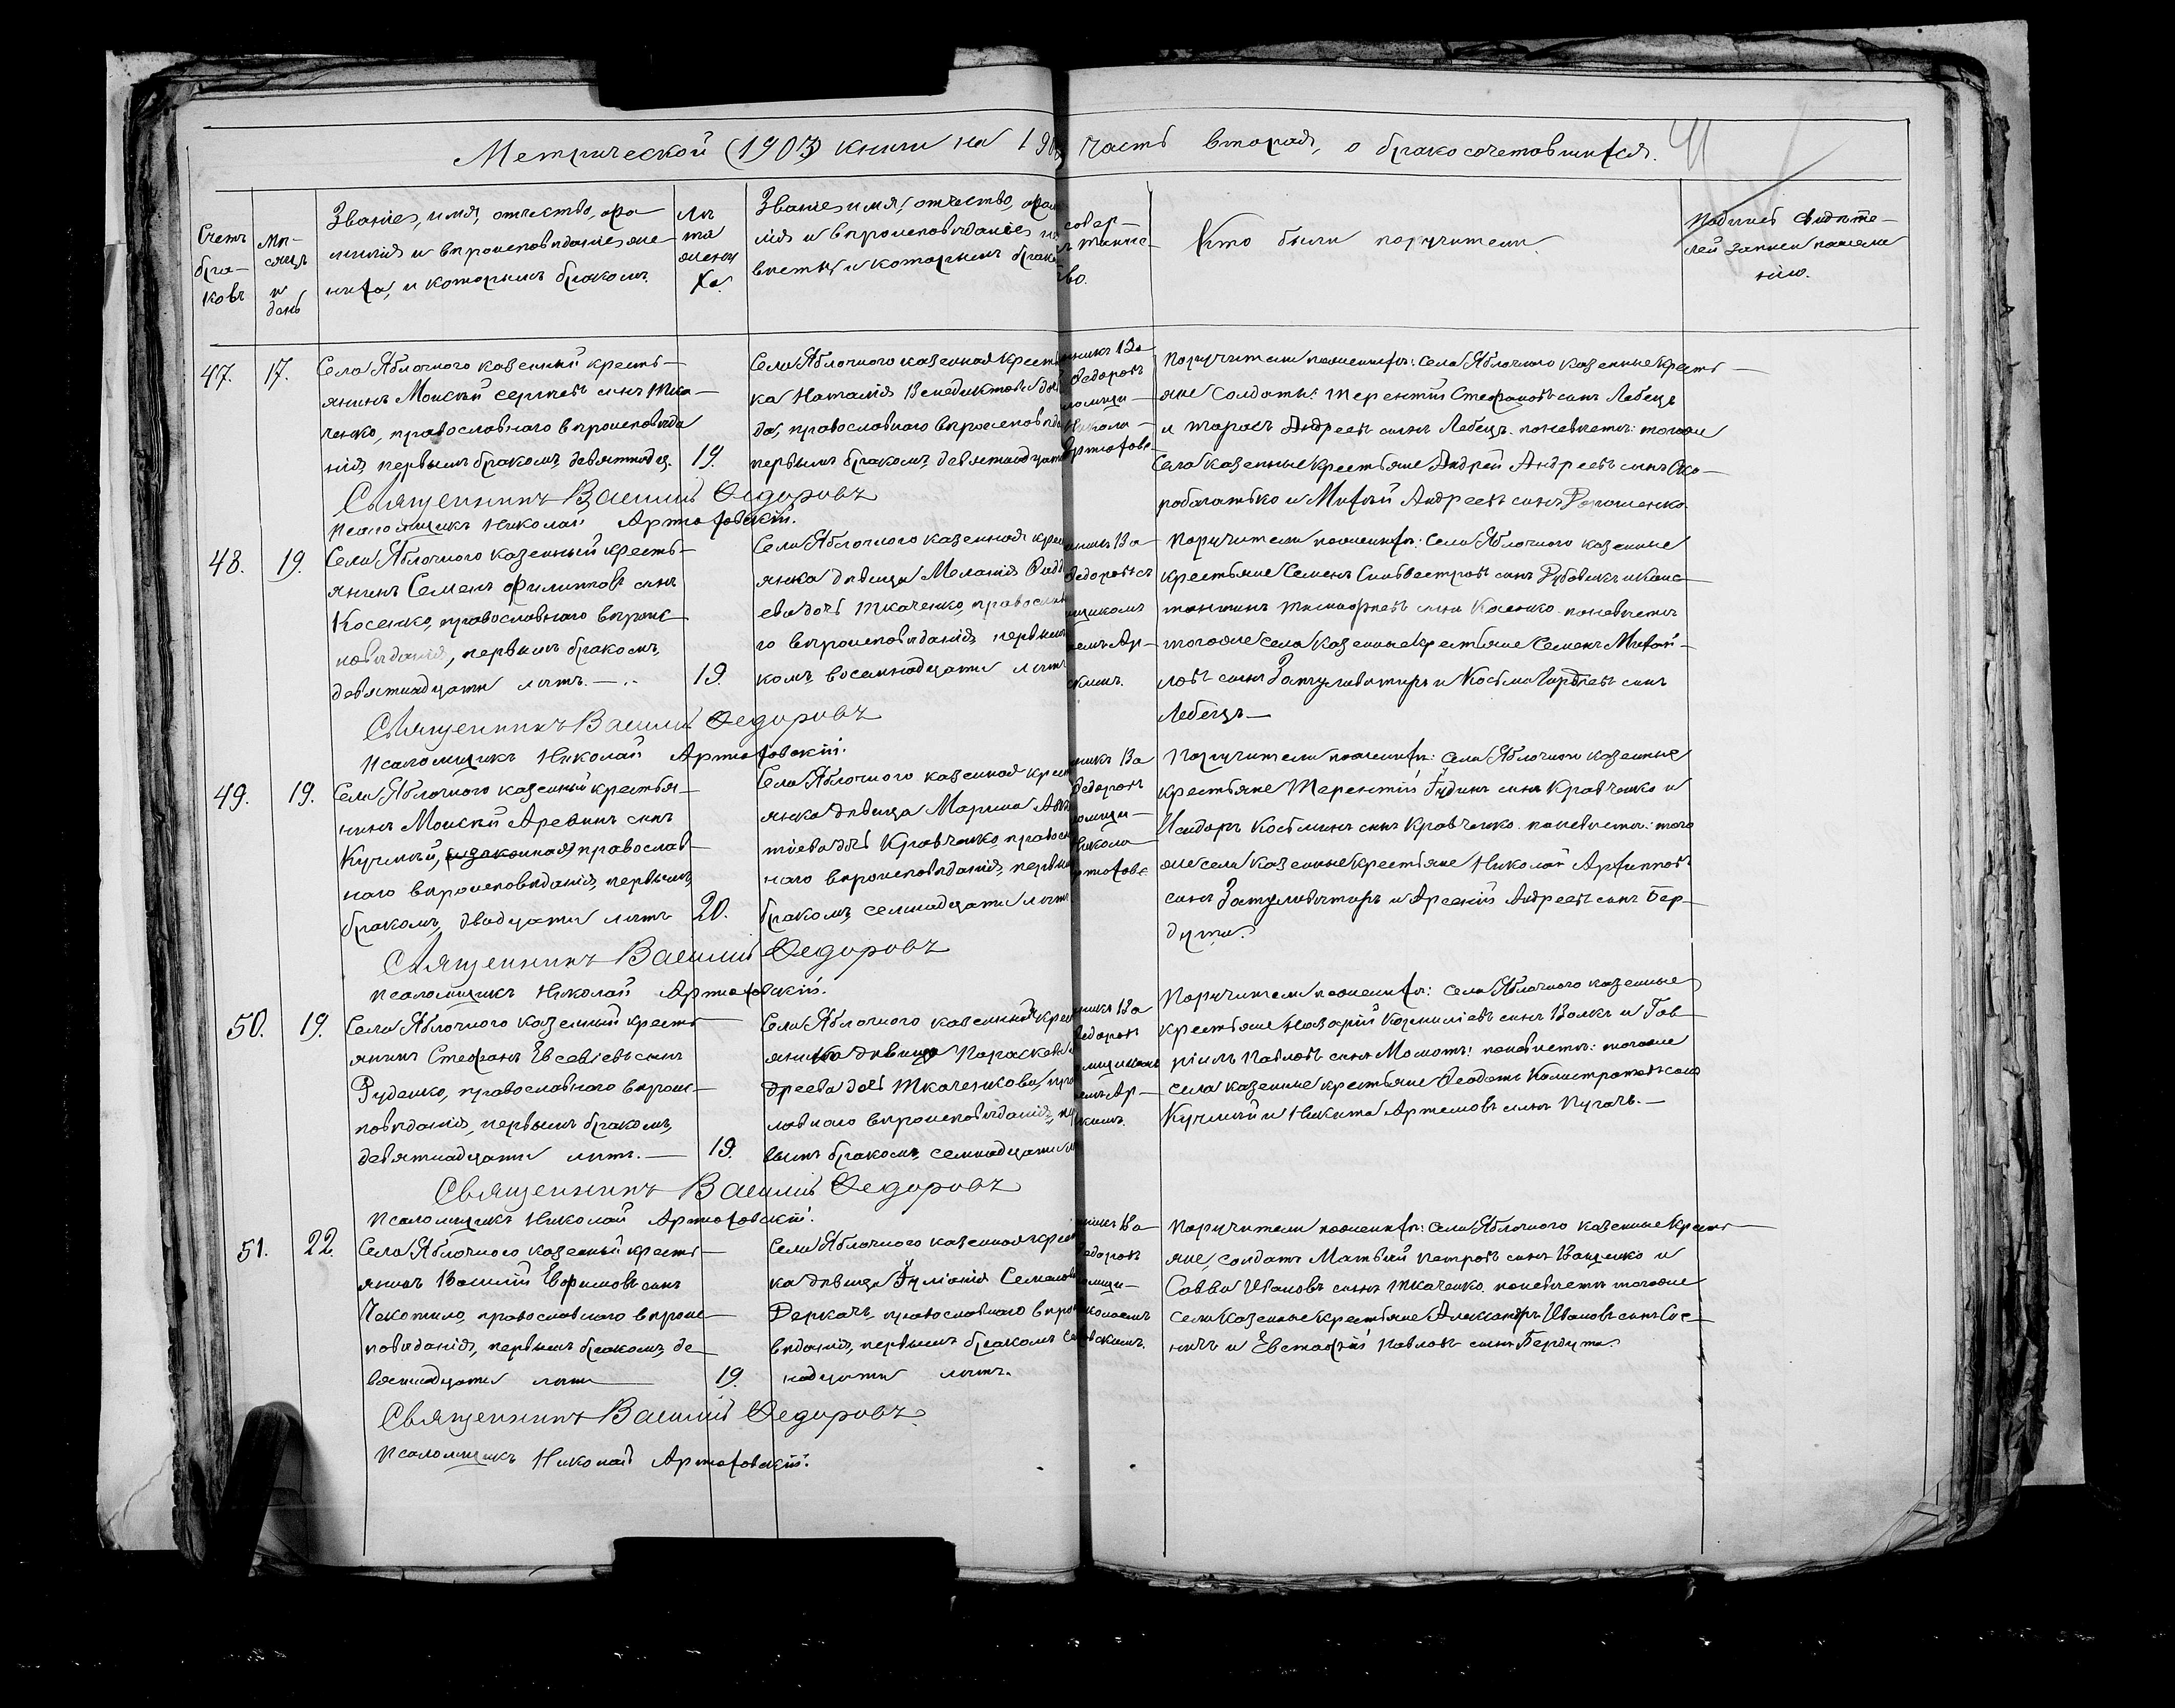 Метрической (1903) книги на 190
часть вторая, о бракосочетавшихся.
Счетъ
бра-
ковъ
Мѣ-
сяцъ
и
день
Званіе, имя, отчество, фа-
милія и вѣроисповѣданіе же-
ниха, и которымъ бракомъ.
Лѣ
та
жени
ха.
Званіе имя, отчество, фам
лія и вѣроисповѣданіе не
вѣсты и которымъ брако
совер-
таинс-
во.
Кто были поручители.
Подпись свидѣте-
лей записи пожела
нію.
47. 17.
Села Яблочного казенный кресть-
янинъ Моисей Сергѣевъ сынъ Тка-
ченко, православнаго вѣроисповѣда
нія первымъ бракомъ, девятнадц. 19.
Села Яблочного казенная кресть
ка Наталія Венедиктова доч
да, православнаго вѣроисповѣда
первымъ бракомъ, девятнадцати
нникъ Ва
Федоровъ
ломщи-
Никола-
Артюхове
Поручители по женихѣ: села Яблочного казенные кресть-
яне солдаты: Терентій Стефановъ сынъ Лебець
и Тарасъ Андреевъ сынъ Лебець. по невѣстѣ: того же
села казенные крестьяне Андрей Андреевъ сынъ Ско-
робагатько и Михей Андреевъ сынъ
Священникъ Василій Федоровъ
Псаломщикъ Николай Артюховскій.
48. 19.
Села Яблочного казенный кресть-
янинъ Семенъ Филипповъ сынъ
Косенко, православнаго вѣроис-
повѣданія, первымъ бракомъ,
девятнадцати лѣтъ. 19.
Села Яблочного казенная крес
янка дѣвица Меланія Фадд
ева дочь Ткаченко, православн
го вѣроисповѣданія, первым
комъ, восемнадцати лѣтъ
нникъ Ва-
Федоровъ съ
мщикомъ
емъ Ар-
скимъ.
Поручители по женихѣ: села Яблочного казенные
крестьяне Семенъ Сильвестровъ сынъ и Конс-
тантинъ Тимофеевъ сынъ Косенко. по невѣстѣ
того же села казенные крестьяне Семенъ Михай-
ловъ сынъ Затуливѣтеръ и Косьма сынъ
Лебець
Священникъ Василій Федоровъ
Псаломщикъ Николай Артюховскій.
49. 19.
Села Яблочного казенный крестья-
нинъ Моисей Арефинъ сынъ
Кучмый, православ-
наго вѣроисповѣданія, первымъ
бракомъ, двадцати лѣтъ 20.
Села Яблочного казенная крест
янка дѣвица Марина
тіева дочь Кравченко, правосл
наго вѣроисповѣданія, первым
бракомъ, семнадцати лѣтъ
нникъ Ва
Федоровъ
ломщи-
Никола
ртюхове
Поручители по женихѣ: села Яблочного казенные
крестьяне Терентій Іудинъ сынъ Кравченко и
Исидоръ Косьминъ сынъ Кравченко. по невѣстѣ: того
же села казенные крестьяне Николай Архиповъ
сынъ Затуливѣтеръ и Арсеній Андреевъ сынъ Бер-
дута.
Священникъ Василій Федоровъ
Псаломщикъ Николай Артюховскій.
50. 19.
Села Яблочного казенный кресть-
янинъ Стефанъ Евсевіевъ сынъ
Руденко, православнаго вѣроис-
повѣданія, первымъ бракомъ,
девятнадцати лѣтъ. 19.
Села Яблочного казенная крес
янка дѣвица Параскева
дреева дочь Ткаченкова, пра
лавнаго вѣроисповѣданія, пер
вымъ бракомъ, семнадцати л
нникъ Ва
Федоровъ
мщикомъ
емъ Ар-
скимъ.
Поручители по женихѣ: села Яблочного казенные
крестьяне Назарій Корниліевъ сынъ Волкъ и Гав-
ріилъ Павловъ сынъ Момотъ: по невѣстѣ: того же
села казенные крестьяне Феодотъ Калистратовъ сынъ
Кучмый и Никита Артемовъ сынъ Пугачъ.
Священникъ Василій Федоровъ
Псаломщикъ Николай Артюховскій.
51. 22.
Села Яблочного казенный кресть-
янинъ Василій Ефимовъ сынъ
Чекотило, православнаго вѣроис-
повѣданія, первымъ бракомъ, де-
вятнадцати лѣтъ 19.
Села Яблочного казенная крест
ка дѣвица Іуліанія Семенова
Деркачъ, православнаго вѣроис
вѣданія, первымъ бракомъ сем
надцати лѣтъ.
нникъ Ва-
Федоровъ
ломщи-
иколаемъ
овскимъ.
Поручители по женихѣ: села Яблочного казенные кресть-
яне, солдатъ Матвѣй Петровъ сынъ Ващенко и
Савва Ивановъ сынъ Ткаченко. по невѣстѣ того же
села казенные крестьяне Александръ Ивановъ сынъ Сѣ-
ничъ и Евстафій Павловъ сынъ Бердута.
Священникъ Василій Федоровъ.
Псаломщикъ Николай Артюховскій.